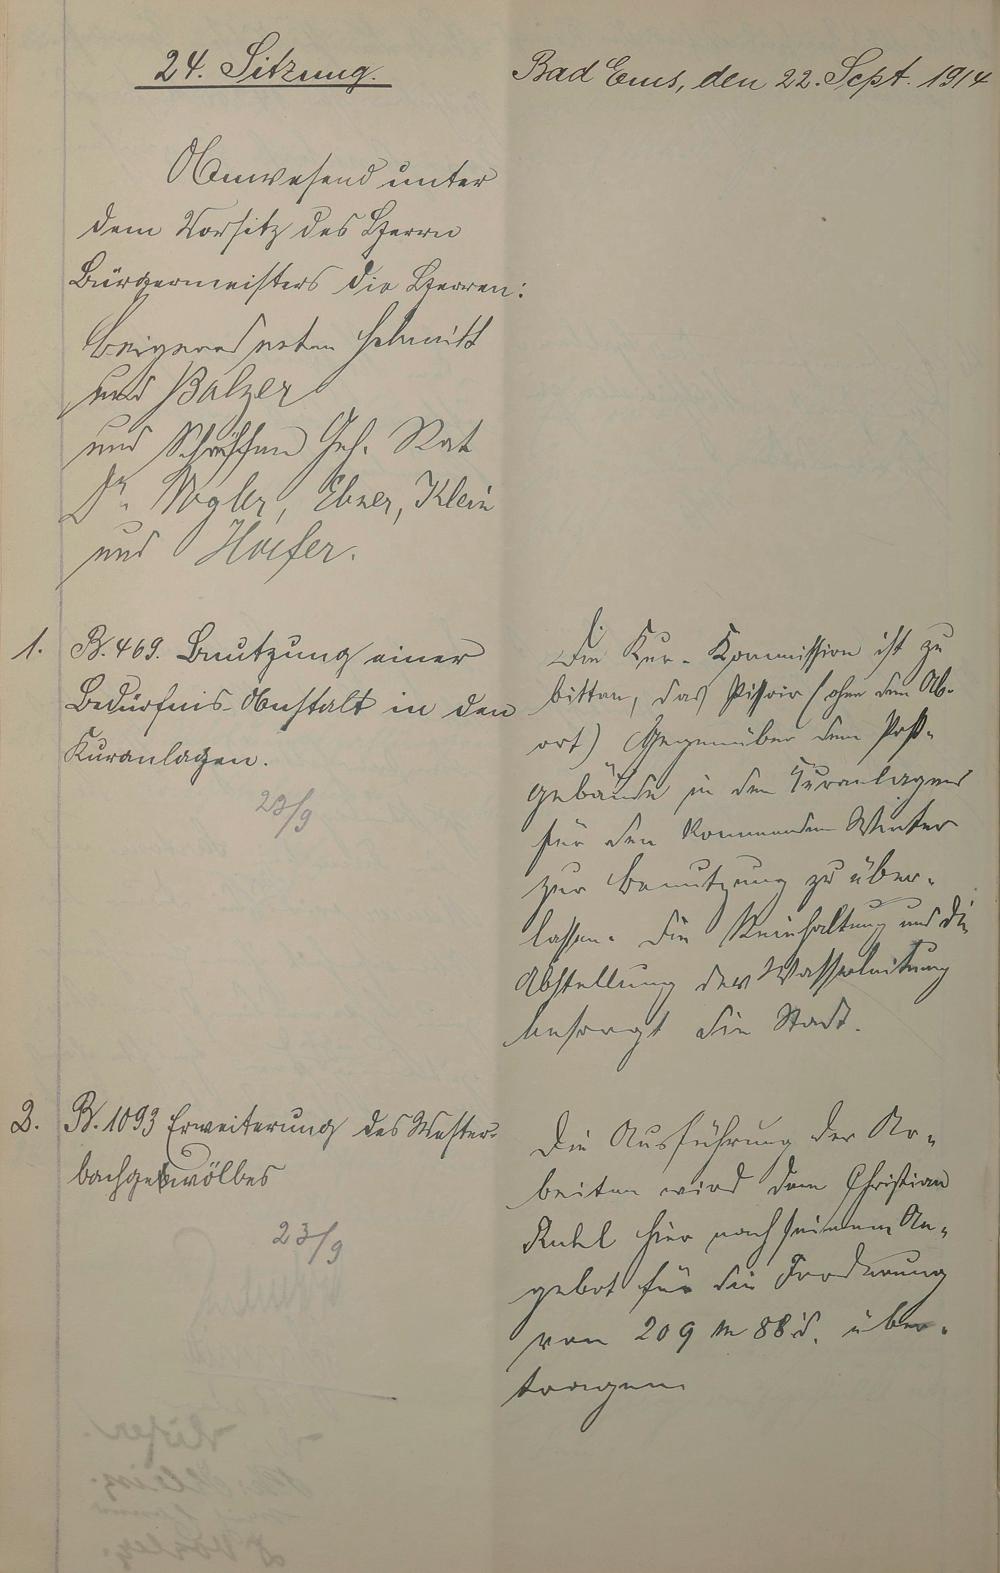 24. Sitzung.
Bad Ems, den 22. Sept. 1914
Anwesend unter
dem Vorsitz des Herrn
Bürgermeisters die Herren:
Beigeordneten Schmitt
und Balzer
und Schöffen Geh. Rat
Dr. Vogler, Ebner, Klein
und Hoefer.
1. B. 469. Benutzung einer
Bedürfnis-Anstalt in den
Kuranlagen.
23/9
Die Kur-Kommission ist zu
bitten, das Pissoir (ohne den Ab-
ort) gegenüber dem Post-
gebäude in den Kuranlagen
für den kommenden Winter
zur Benutzung zu über-
lassen. Die Reinhaltung und die
Abstellung der Wasserleitung
besorgt die Stadt.
2. B. 1093 Erweiterung des Wester-
bachgewölbes
23/9
Die Ausführung der Ar-
beiten wird dem Christian
hier nach seinem An-
gebot für die Forderung
von 209 M 88 d. über-
tragen